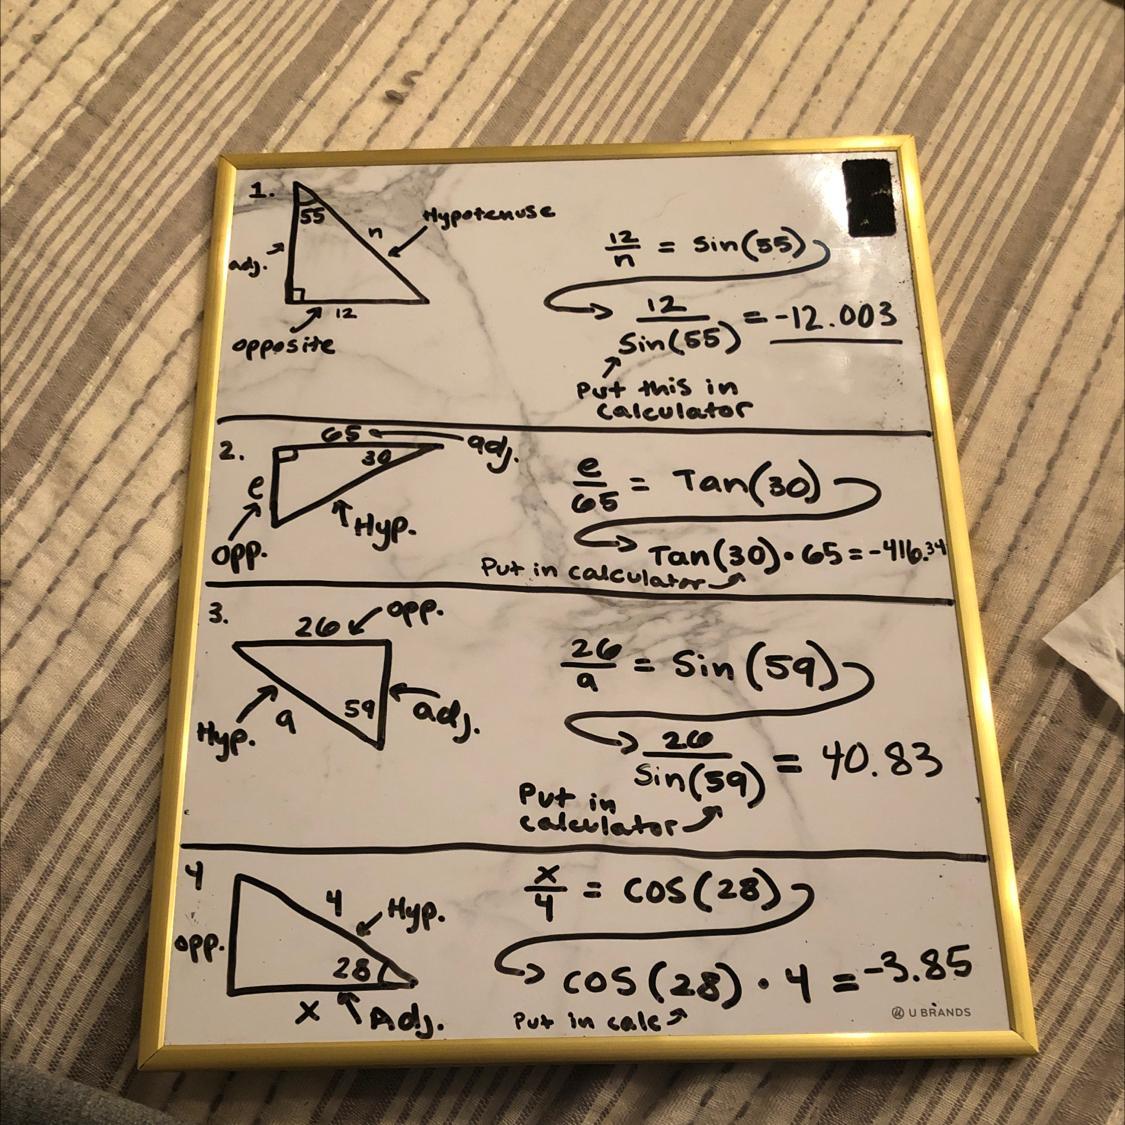 1.
55
Hypotenuse
n
adj.
12
opposite
12/n = Sin(55)
12/Sin(55) = -12.003
Put this in
calculator
2.
65
adj.
30
e
Hyp.
opp.
e/65 = Tan(30)
Tan(30)·65=-416.34
Put in calculator
3.
26
opp.
59
adj.
Hyp.
a
26/a = Sin(59)
26/Sin(59) = 40.83
Put in
calculator
4
4
Hyp.
opp.
28
x
Adj.
x/4 = cos(28)
cos(28)·4 = -3.85
Put in calc
U BRANDS